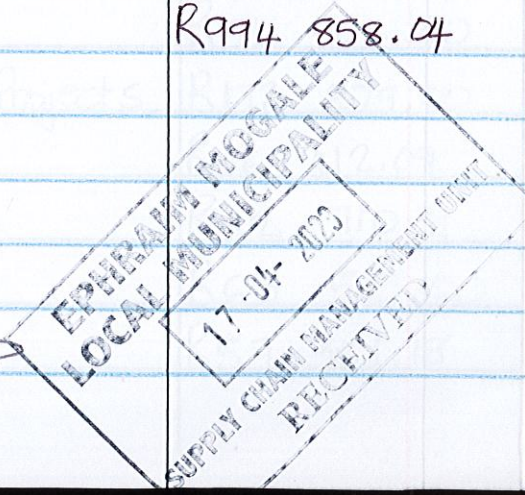 R994 858.04
EPHRAIM MOGALE
LOCAL MUNICIPALITY
17-04-2023
SUPPLY CHAIN MANAGEMENT UNIT
RECEIVED